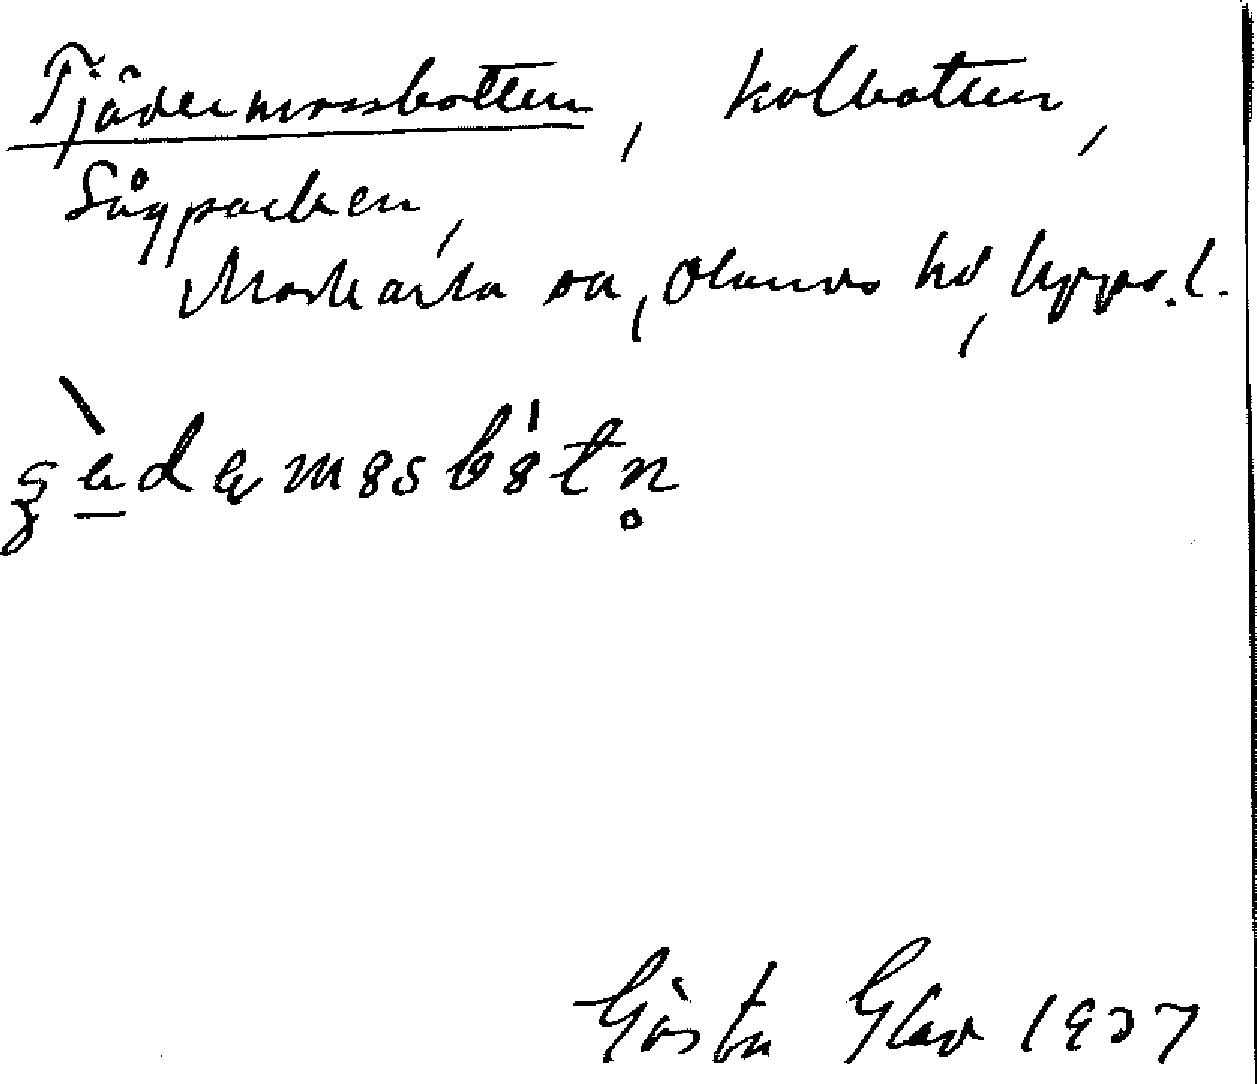 Tjädermossbotten, kolbotten,
Sågparken,
Morkarla sn, Olands hd, Upps. l.
Gösta Glad 1937